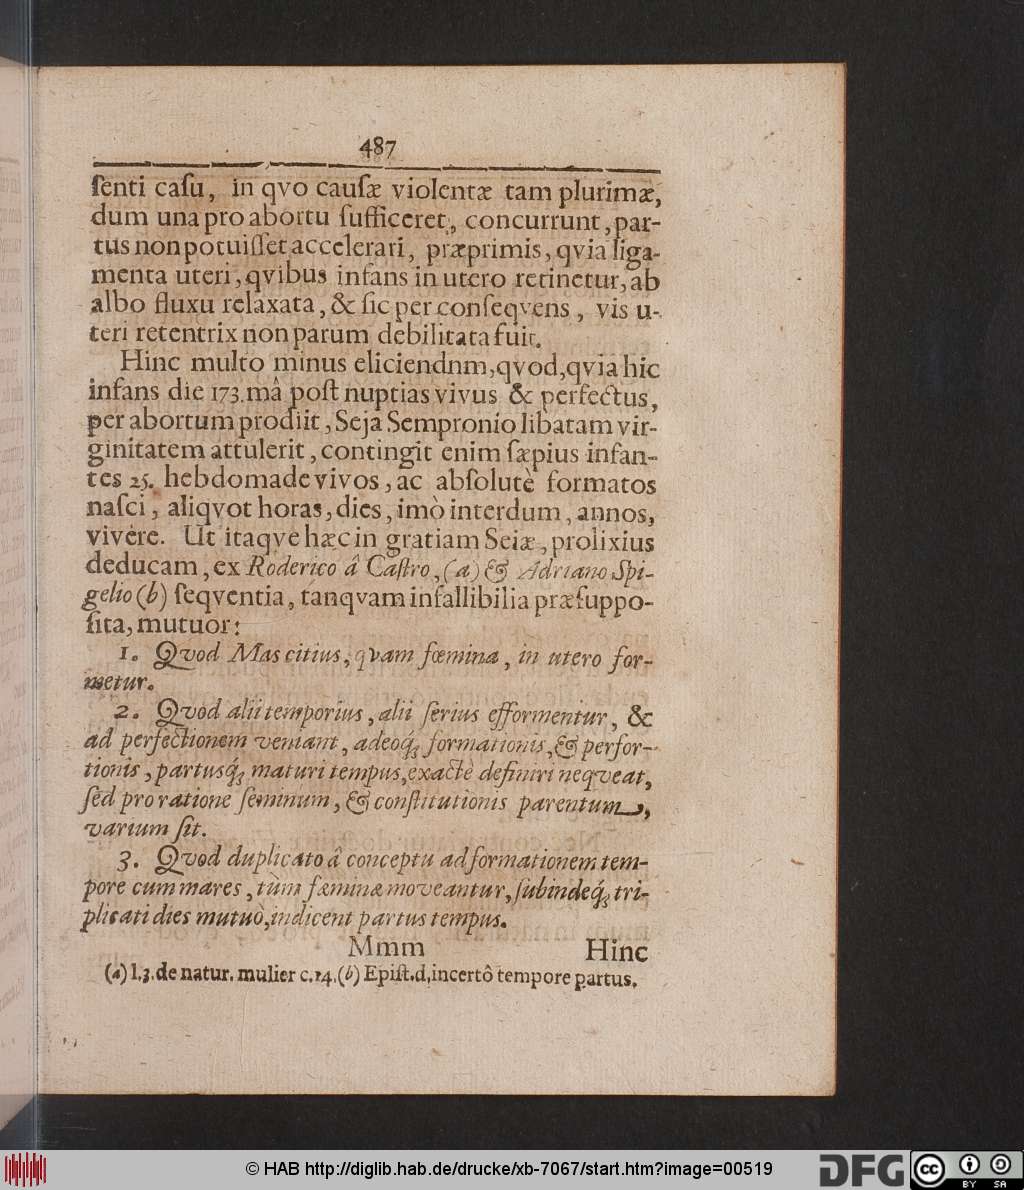 487
ſenti caſu, in qvo cauſæ violentæ tam plurimæ,
dum una pro abortu ſufficeret, concurrunt, par-
tus non potuiſſet accelerari, præprimis, qvia liga-
menta uteri, qvibus infans in utero retinetur, ab
albo fluxu relaxata, & ſic per conſeqvens, vis u-
teri retentrix non parum debilitata fuit.
Hinc multo minus eliciendnm, qvod, qvia hic
infans die 173.mâ poſt nuptias vivus & perfectus,
per abortum prodiit, Seja Sempronio libatam vir-
ginitatem attulerit, contingit enim ſæpius infan-
tes 25. hebdomade vivos, ac abſolutè formatos
naſci, aliqvot horas, dies, imò interdum, annos,
vivere. Ut itaqve hæc in gratiam Seiæ, prolixius
deducam, ex Roderico â Caſtro, (a) & Adriano Spi-
gelio (b) ſeqventia, tanqvam infallibilia præſuppo-
ſita, mutuor:
1. Qvod Mas citius, qvam fœmina, in utero for-
metur.
2. Qvod alii temporius, alii ſerius efformentur, &
ad perfectionem veniant, adeoq́; formationis, & perfor-
tionis, partusq́; maturi tempus, exactè definiri neqveat,
ſed pro ratione ſeminum, & conſtitutionis parentum,
varium ſit.
3. Qvod duplicato â conceptu ad formationem tem-
pore cum mares, tùm fæminæ moveantur, ſubindeq́; tri-
plicati dies mutuò, indicent partus tempus.
Mmm Hinc
(a) l.3. de natur. mulier c.14. (b) Epiſt. d, incertô tempore partus.
© HAB http://diglib.hab.de/drucke/xb-7067/start.htm?image=00519
DFG cc BY SA